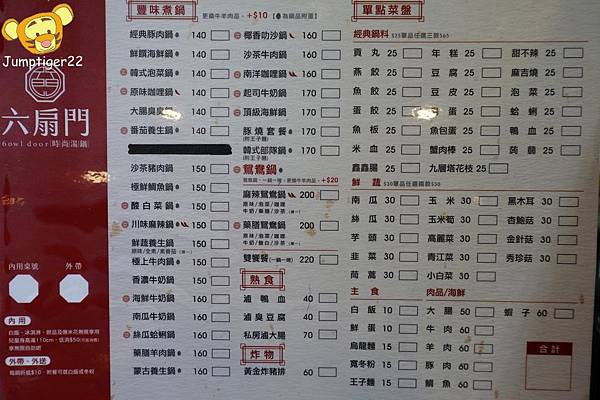 Jumptiger22
六扇門
6owl door|時尚湯鍋
內用桌號 外帶
內用
外帶・外送
豐味煮鍋
更換牛羊肉品，+$10
經典豚肉鍋 140
鮮饌海鮮鍋 140
韓式泡菜鍋 140
原味咖哩鍋 150
大腸臭臭鍋 150
番茄養生鍋 150
沙茶豬肉鍋 150
極鮮鯛魚鍋 150
酸白菜鍋 150
川味麻辣鍋 150
鮮蔬養生鍋 150
極上牛肉鍋 150
香濃牛奶鍋 150
海鮮牛奶鍋 160
南瓜牛奶鍋 160
絲瓜蛤蜊鍋 160
藥膳羊肉鍋 170
蒙古養生鍋 160
椰香叻沙鍋 160
沙茶牛肉鍋 160
南洋咖哩鍋 160
起司牛奶鍋 170
頂級海鮮鍋 170
豚燒套餐 170
附王子麵
韓式部隊鍋 170
附王子麵
鴛鴦鍋
+$20
麻辣鴛鴦鍋 200
藥膳鴛鴦鍋 200
雙饗鍋 220
熟食
滷鴨血 40
滷臭豆腐 40
私房滷大腸 70
炸物
黃金炸豬排 60
單點菜盤
經典鍋料 $25單品任選三款$65
貢丸 25 年糕 25 甜不辣 25
燕餃 25 豆腐 25 麻吉燒 25
魚餃 25 豆皮 25 泡菜 25
蛋餃 25 蛋 25 蛤蜊 25
魚板 25 魚包蛋 25 鴨血 25
米血 25 蟹肉棒 25 蒟蒻 25
鑫鑫腸 25 九層塔花枝 25
鮮蔬 $30單品任選兩款$50
南瓜 30 玉米 30 黑木耳 30
絲瓜 30 玉米筍 30 杏鮑菇 30
芋頭 30 高麗菜 30 金針菇 30
韭菜 30 青江菜 30 秀珍菇 30
茼蒿 30 小白菜 30
主食 肉品/海鮮
白飯 10 大腸 50 蝦子 60
鮮蛋 10 牛肉 60
烏龍麵 15 羊肉 60
寬冬粉 15 豚肉 60
王子麵 15 鯛魚 60
合計